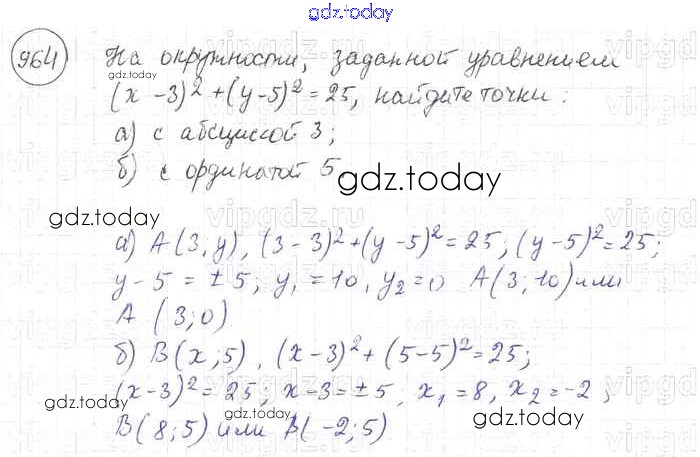 gdz.today
964 На окружности, заданной уравнением
gdz.today
(x - 3)² + (y - 5)² = 25, найдите точки:
а) с абсциссой 3;
б) с ординатой 5
gdz.today
gdz.today
а) A(3, y), (3-3)² + (y-5)² = 25; (y-5)² = 25;
y - 5 = ± 5, y₁ = 10, y₂ = 0 A(3; 10) или
A (3; 0)
б) B(x; 5), (x-3)² + (5-5)² = 25;
(x-3)² = 25; x-3 = ±5, x₁ = 8, x₂ = -2;
gdz.today
gdz.today
B(8; 5) или B(-2; 5)
gdz.today